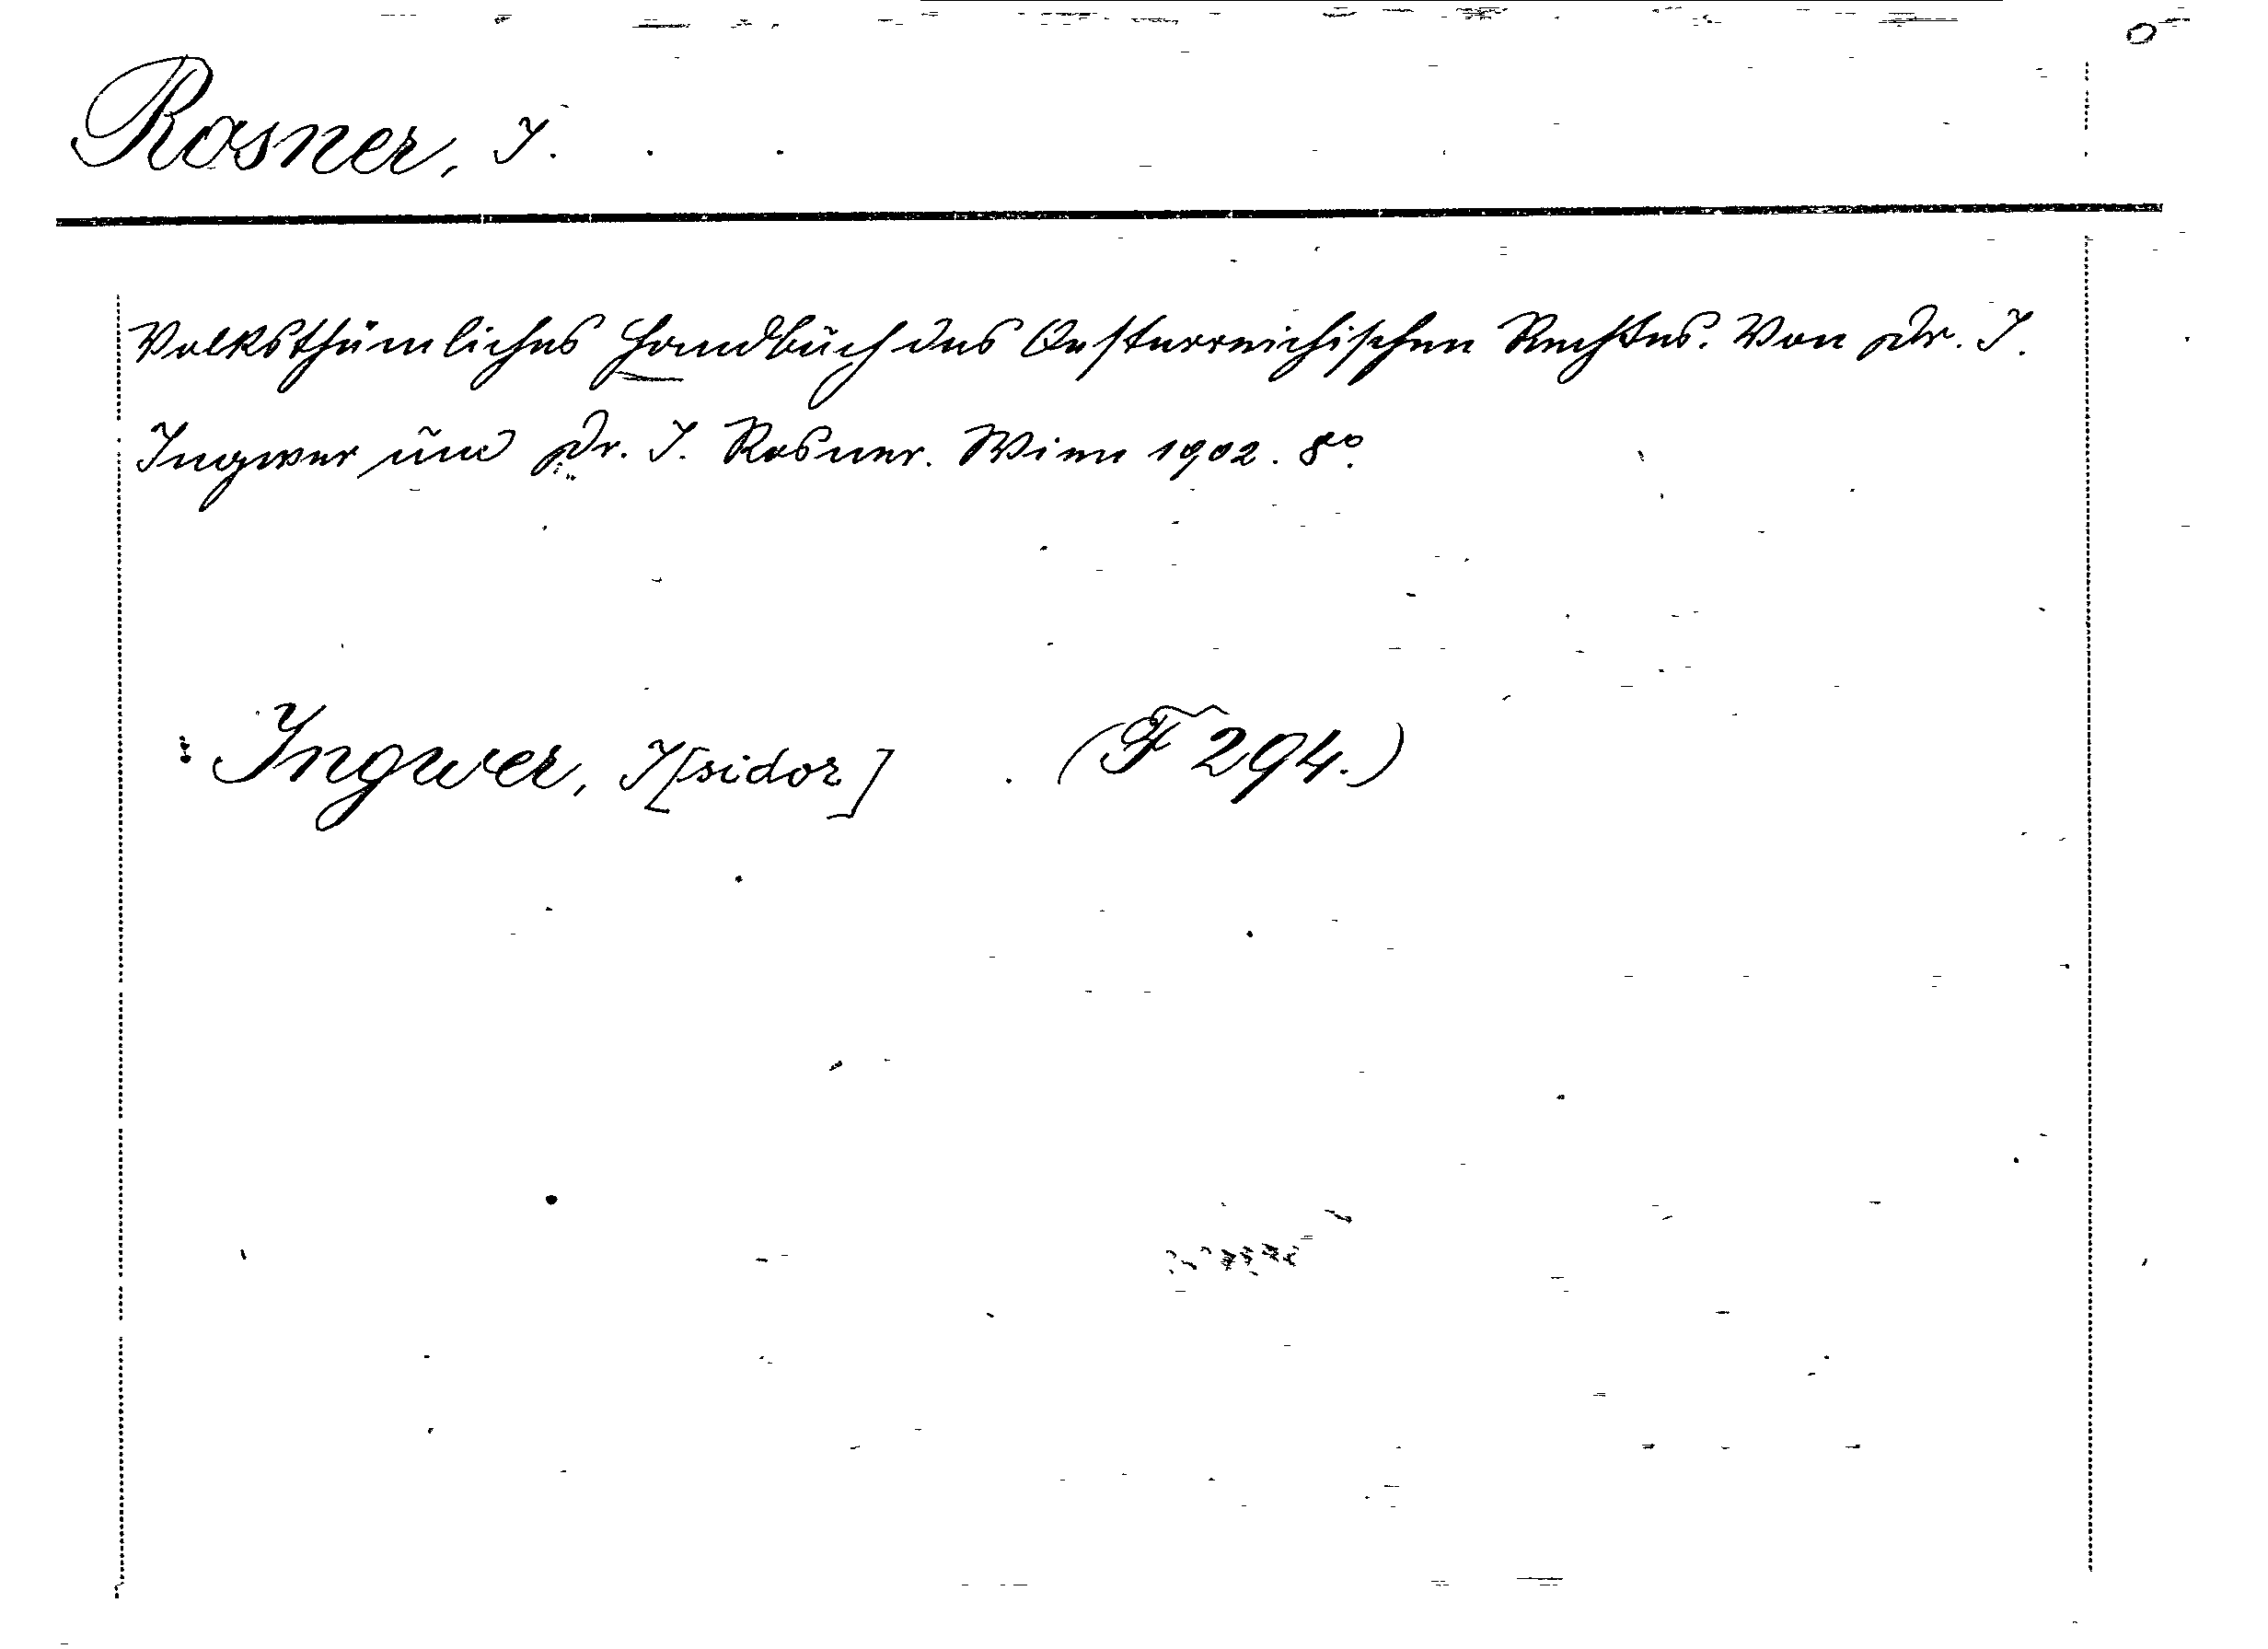 Rosner, I.
Volksthümliches Handbuch des Oesterreichischen Rechtes. Von Dr. I.
Ingwer und Dr. I. Rosner. Wien 1902. 8°.
: Ingwer, I[sidor] (F 294.)